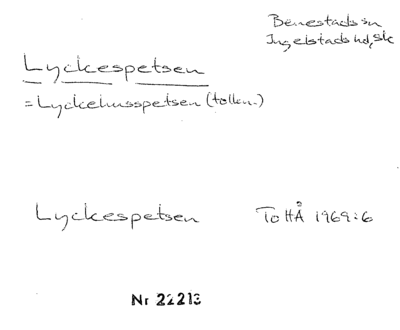 Benestads sn
Ingelstads hd, Sk
Lyckespetsen
= Lyckehusspetsen (tolkn.)
Lyckespetsen ToHÅ 1969:6
Nr 22213